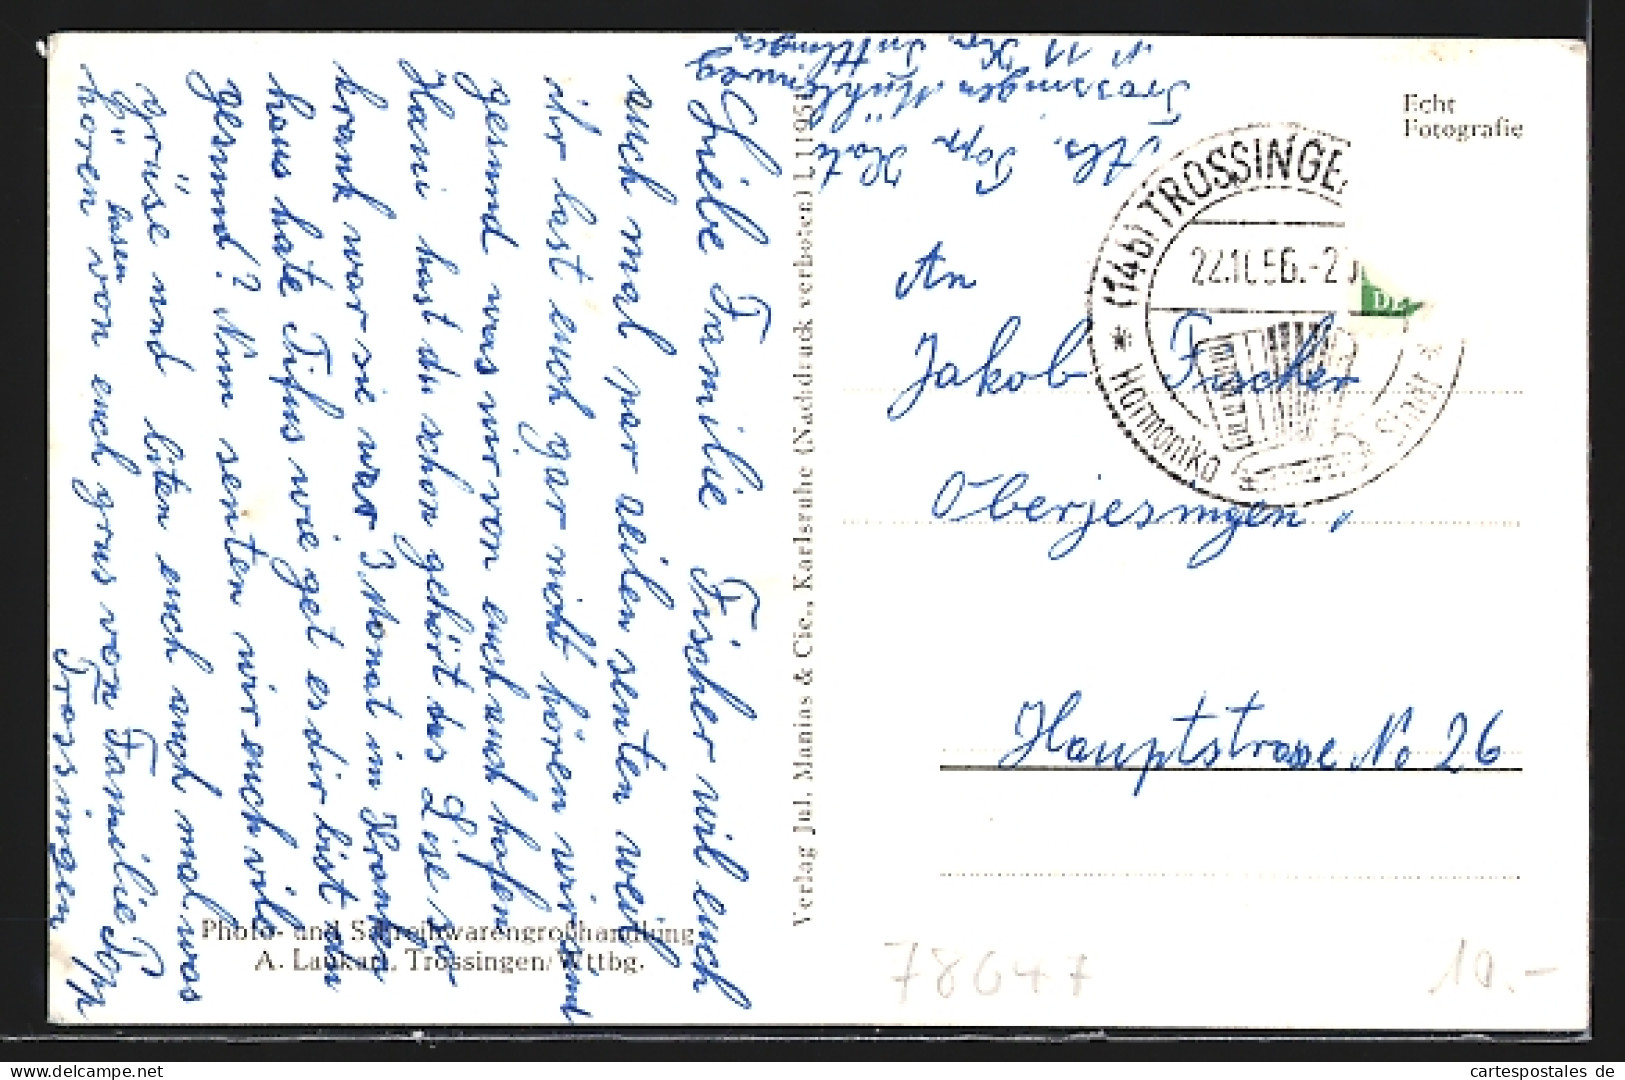 Liebe Familie Fischer wil euch
auch mal par zeilen senten weil
ihr last euch gar nicht hören wir sind
gesund was wir von euch auch hofen
Hani hast du schon gehört das Lise so
krank war sie war 3 Monat im Kranken
haus hate Tifus wie get es dir bist du
gesund? Nun senten wir euch vile
grüse und biten euch auch mal was
hören lasen von euch grus von Familie Topp
Trossingen
Abs. Topp Kati
Trossingen Mühleweg
N 11 Kr. Tuttlingen
Photo- und Schreibwarengroßhandlung
A. Laukart, Trossingen/Wttbg.
Verlag Jul. Manias & Cie., Karlsruhe (Nachdruck verboten) L 11951
Echt
Fotografie
(14b) TROSSINGE
22.10.56.-2
* Harmonika Stadt *
An
Jakob Fischer
Oberjesingen,
Hauptstrasse No 26
78647
10.-
cartespostales de